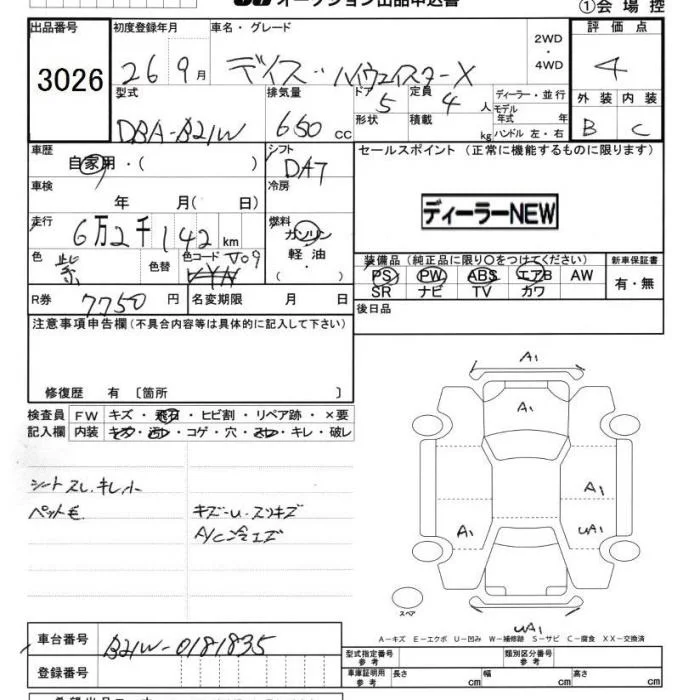 オークション出品申込書
①会 場 控
出品番号 初度登録年月 車名・グレード 評 価 点
3026 26 9月 デイズ・ハイウェイスターX 2WD ・ 4WD 4
型式 排気量 ドア 定員 ディーラー・並行 外 装 内 装
DBA-B21W 650 cc 5 4 人 モデル年式 年 B C
形状 積載 kg ハンドル 左・右
車歴 シフト セールスポイント (正常に機能するものに限ります)
自家用・( ) DAT
車検 冷房
年 月( 日)
ディーラーNEW
走行 燃料
6万2千142 km ガソリン
色 紫 色替 色コード V09 軽 油
・
( )
装備品(純正品に限り○をつけてください) 新車保証書
PS PW ABS エアB AW 有・無
SR ナビ TV カワ
R券 7750 円 名変期限 月 日
後日品
注意事項申告欄(不具合内容等は具体的に記入して下さい)
修復歴 有 〔箇所 〕
検査員 FW キズ・飛石・ヒビ割・リペア跡・×要
記入欄 内装 キズ・汚レ・コゲ・穴・スレ・キレ・破レ
シートスレ.キレ.小
ペット毛 キズ-U.スリキズ
A/C冷エズ
A1
A1
A1
A1 UA1
スペア
UA1
A−キズ E−エクボ U−凹み W−補修跡 S−サビ C−腐食 XX−交換済
車台番号 B21W-0181835
登録番号
型式指定番号 参 考 類別区分番号 参 考
車庫証明用 参 考 長さ cm 幅 cm 高さ cm